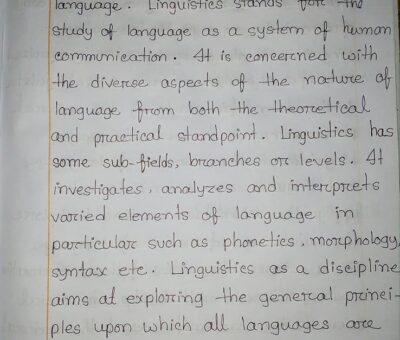 language. Linguistics stands for the
study of language as a system of human
communication. It is concerned with
the diverse aspects of the nature of
language from both the theoretical
and practical standpoint. Linguistics has
some sub-fields, branches or levels. It
investigates, analyzes and interprets
varied elements of language in
particular such as phonetics, morphology,
syntax etc. Linguistics as a discipline
aims at exploring the general princi-
ples upon which all languages are